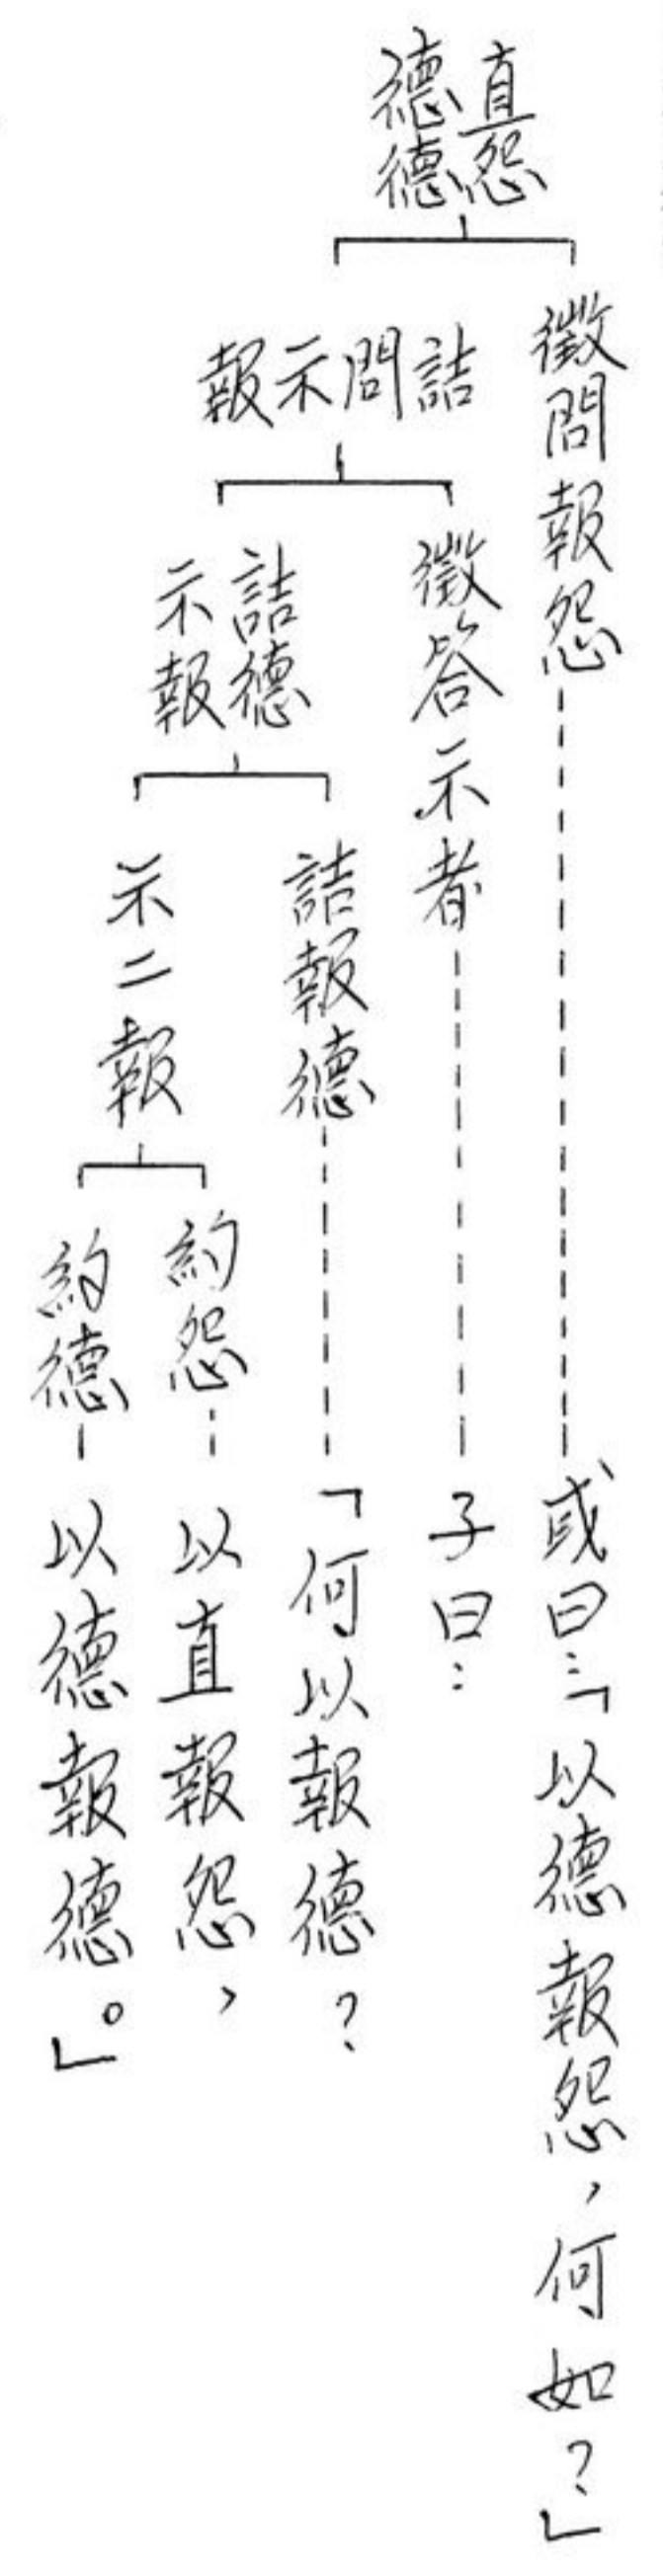 直怨
德德
徵問報怨
或曰：「以德報怨，何如？」
詰問示報
徵答示者
子曰：
詰德
示報
詰報德
「何以報德？
示二報
約怨
以直報怨，
約德
以德報德。」